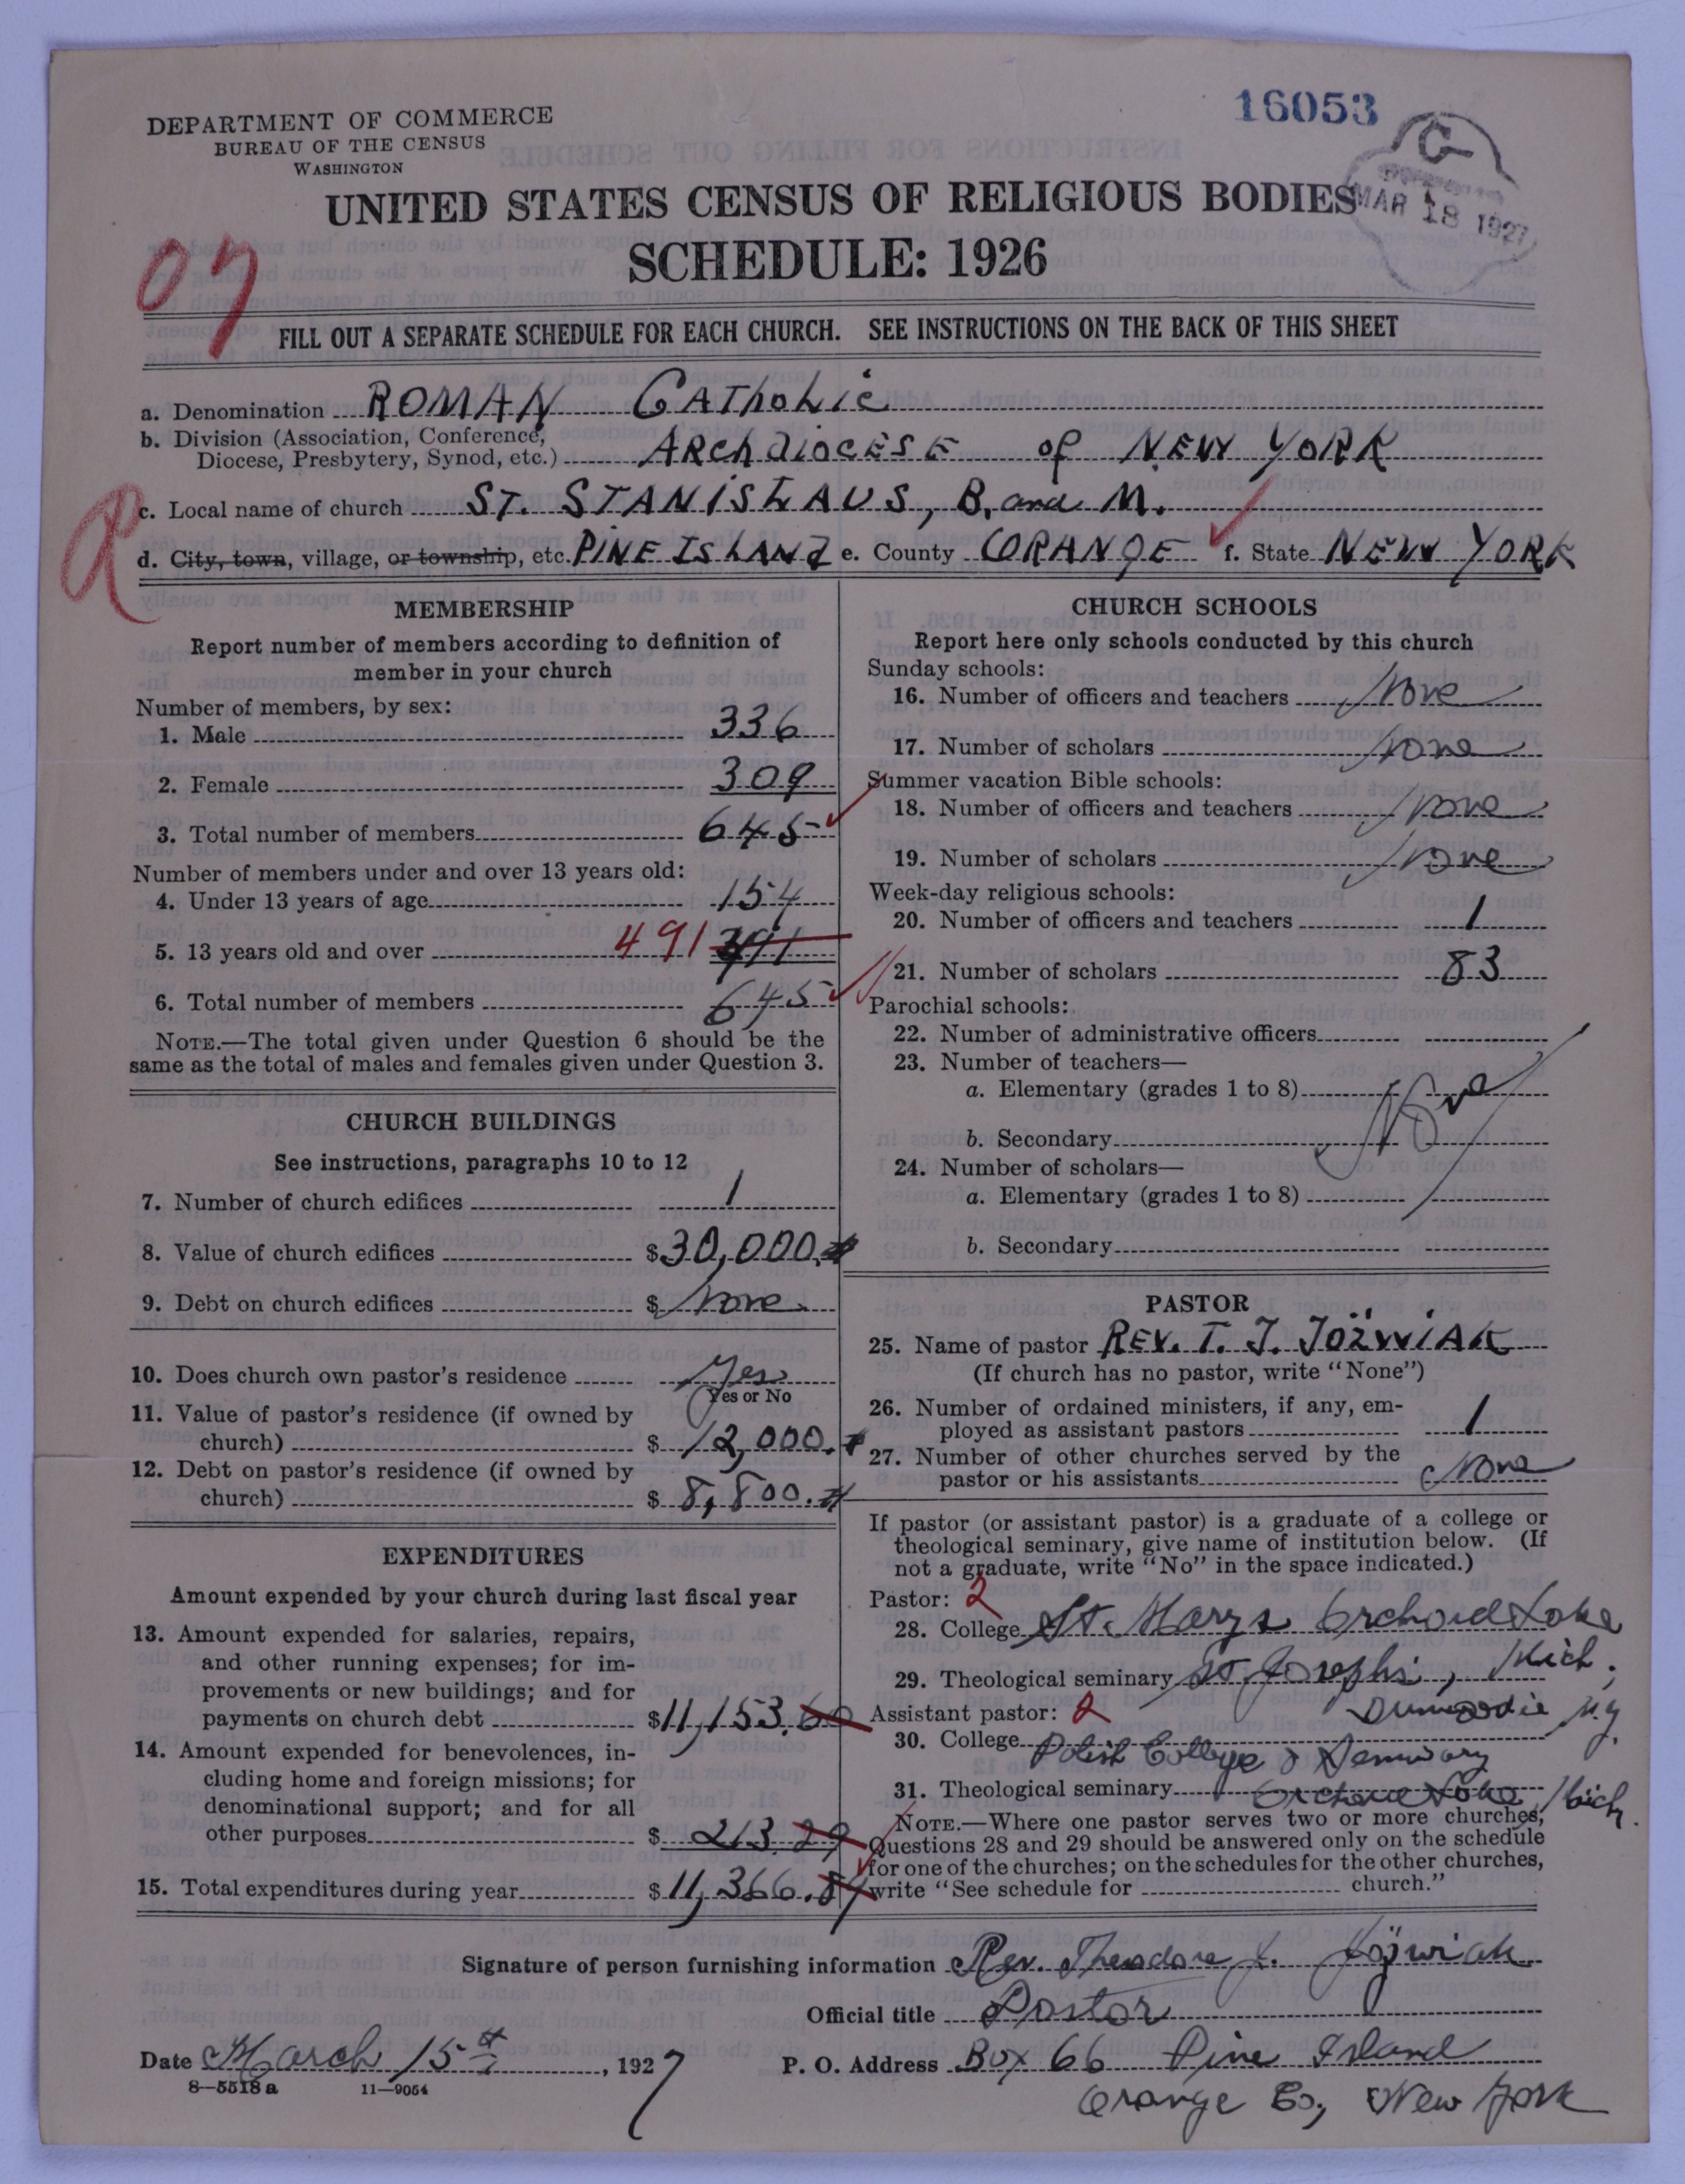 16053
DEPARTMENT OF COMMERCE
BUREAU OF THE CENSUS
WASHINGTON
C
MAR 18 1927
UNITED STATES CENSUS OF RELIGIOUS BODIES
SCHEDULE: 1926
07
FILL OUT A SEPARATE SCHEDULE FOR EACH CHURCH. SEE INSTRUCTIONS ON THE BACK OF THIS SHEET
a. Denomination ROMAN CATHOLIC
b. Division (Association, Conference,
Diocese, Presbytery, Synod, etc.) ARCHDIOCESE of NEW YORK
R
c. Local name of church ST. STANISLAUS, B. and M.
d. City, town, village, or township, etc. PINE ISLAND e. County ORANGE f. State NEW YORK
MEMBERSHIP
Report number of members according to definition of
member in your church
Number of members, by sex:
1. Male 336
2. Female 309
3. Total number of members 645
Number of members under and over 13 years old:
4. Under 13 years of age 154
5. 13 years old and over 491 391
6. Total number of members 645
NOTE.—The total given under Question 6 should be the
same as the total of males and females given under Question 3.
CHURCH BUILDINGS
See instructions, paragraphs 10 to 12
7. Number of church edifices 1
8. Value of church edifices $30,000.
9. Debt on church edifices $ None
10. Does church own pastor's residence Yes
Yes or No
11. Value of pastor's residence (if owned by
church) $ 12,000.
12. Debt on pastor's residence (if owned by
church) $ 8,800.
EXPENDITURES
Amount expended by your church during last fiscal year
13. Amount expended for salaries, repairs,
and other running expenses; for im-
provements or new buildings; and for
payments on church debt $11,153.60
14. Amount expended for benevolences, in-
cluding home and foreign missions; for
denominational support; and for all
other purposes $ 213.29
15. Total expenditures during year $11,366.89
CHURCH SCHOOLS
Report here only schools conducted by this church
Sunday schools:
16. Number of officers and teachers None
17. Number of scholars None
Summer vacation Bible schools:
18. Number of officers and teachers None
19. Number of scholars None
Week-day religious schools:
20. Number of officers and teachers 1
21. Number of scholars 83
Parochial schools:
22. Number of administrative officers
23. Number of teachers—
a. Elementary (grades 1 to 8)
b. Secondary
24. Number of scholars—
a. Elementary (grades 1 to 8)
b. Secondary
PASTOR
25. Name of pastor REV. T. J. JOŻWIAK
(If church has no pastor, write "None")
26. Number of ordained ministers, if any, em-
ployed as assistant pastors 1
27. Number of other churches served by the
pastor or his assistants None
If pastor (or assistant pastor) is a graduate of a college or
theological seminary, give name of institution below. (If
not a graduate, write "No" in the space indicated.)
Pastor: 2
28. College St. Marys Orchard Lake
29. Theological seminary St. Josephs, Mich.
Assistant pastor: 2 Dunwoodie N.Y.
30. College Polish College & Seminary
31. Theological seminary Orchard Lake, Mich.
NOTE.—Where one pastor serves two or more churches,
Questions 28 and 29 should be answered only on the schedule
for one of the churches; on the schedules for the other churches,
write "See schedule for church."
Signature of person furnishing information Rev. Theodore J. Jóżwiak
Official title Pastor
Date March 15th, 1927 P. O. Address Box 66 Pine Island
8—5518 a 11—9054
Orange Co, New York